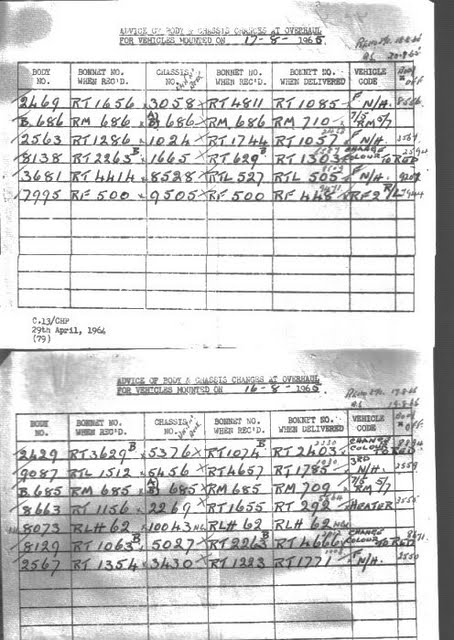 ADVICE OF BODY & CHASSIS CHANGES AT OVERHAUL
FOR VEHICLES MOUNTED ON 17-8-1966
BODY NO. BONNET NO. WHEN REC'D. CHASSIS NO. BONNET NO. WHEN REC'D. BONNET NO. WHEN DELIVERED VEHICLE CODE Body off
2469 RT1656 3058 RT4811 RT1085 F N/H.
B.686 RM 686 A) 686 RM 686 RM 710 7/5 RM 5/7
2563 RT1286 1024 RT1744 RT1057 F N/H.
8138 RT2263 B 1665 RT629 B RT1303 CHANGE COLOUR TO RED
3681 RT4414 8528 RTL 527 RTL 505 F N/H. 9207
7995 RF 500 9505 RF 500 RF 448 RF2 R/L
C.13/CHP
29th April, 1964
(79)
ADVICE OF BODY & CHASSIS CHANGES AT OVERHAUL
FOR VEHICLES MOUNTED ON 16-8-1966
BODY NO. BONNET NO. WHEN REC'D. CHASSIS NO. BONNET NO. WHEN REC'D. BONNET NO. WHEN DELIVERED VEHICLE CODE Body off
2429 RT3629 B 5376 RT1074 B RT2403 CHANGE COLOUR TO RED
9087 RTL 1512 5456 RT4657 RT1785 3RD N/H. 2559
B.685 RM 685 A) 685 RM 685 RM 709 7/5 RM 5/7
8663 RT 1156 2269 RT1655 RT 292 HEATER 3555
8073 RLH 62 10043 RLH 62 RLH 62
8129 RT1063 B 5027 RT2263 B RT4666 CHANGE COLOUR TO RED
2567 RT 1354 3430 RT1223 RT1771 F N/H. 2550